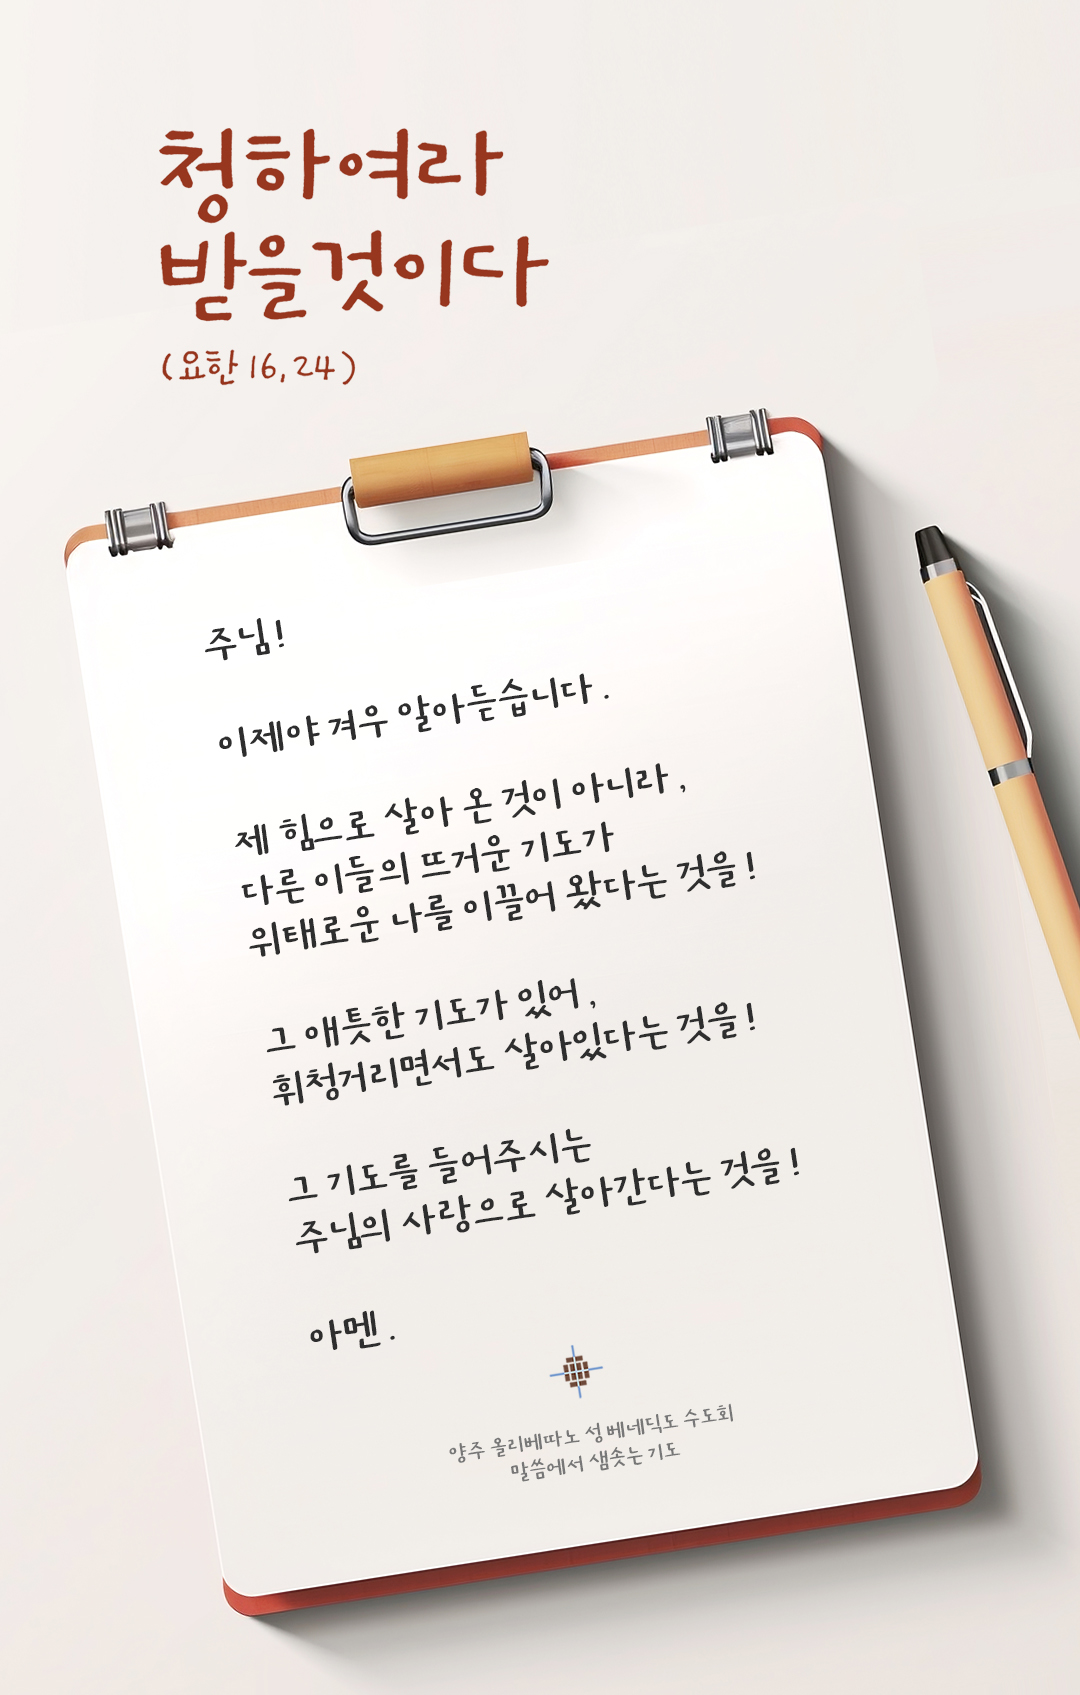 청하여라
받을것이다
(요한 16,24)
주님!
이제야 겨우 알아듣습니다.
제 힘으로 살아 온 것이 아니라,
다른 이들의 뜨거운 기도가
위태로운 나를 이끌어 왔다는 것을!
그 애틋한 기도가 있어,
휘청거리면서도 살아있다는 것을!
그 기도를 들어주시는
주님의 사랑으로 살아간다는 것을!
아멘.
양주 올리베따노 성 베네딕도 수도회
말씀에서 샘솟는 기도